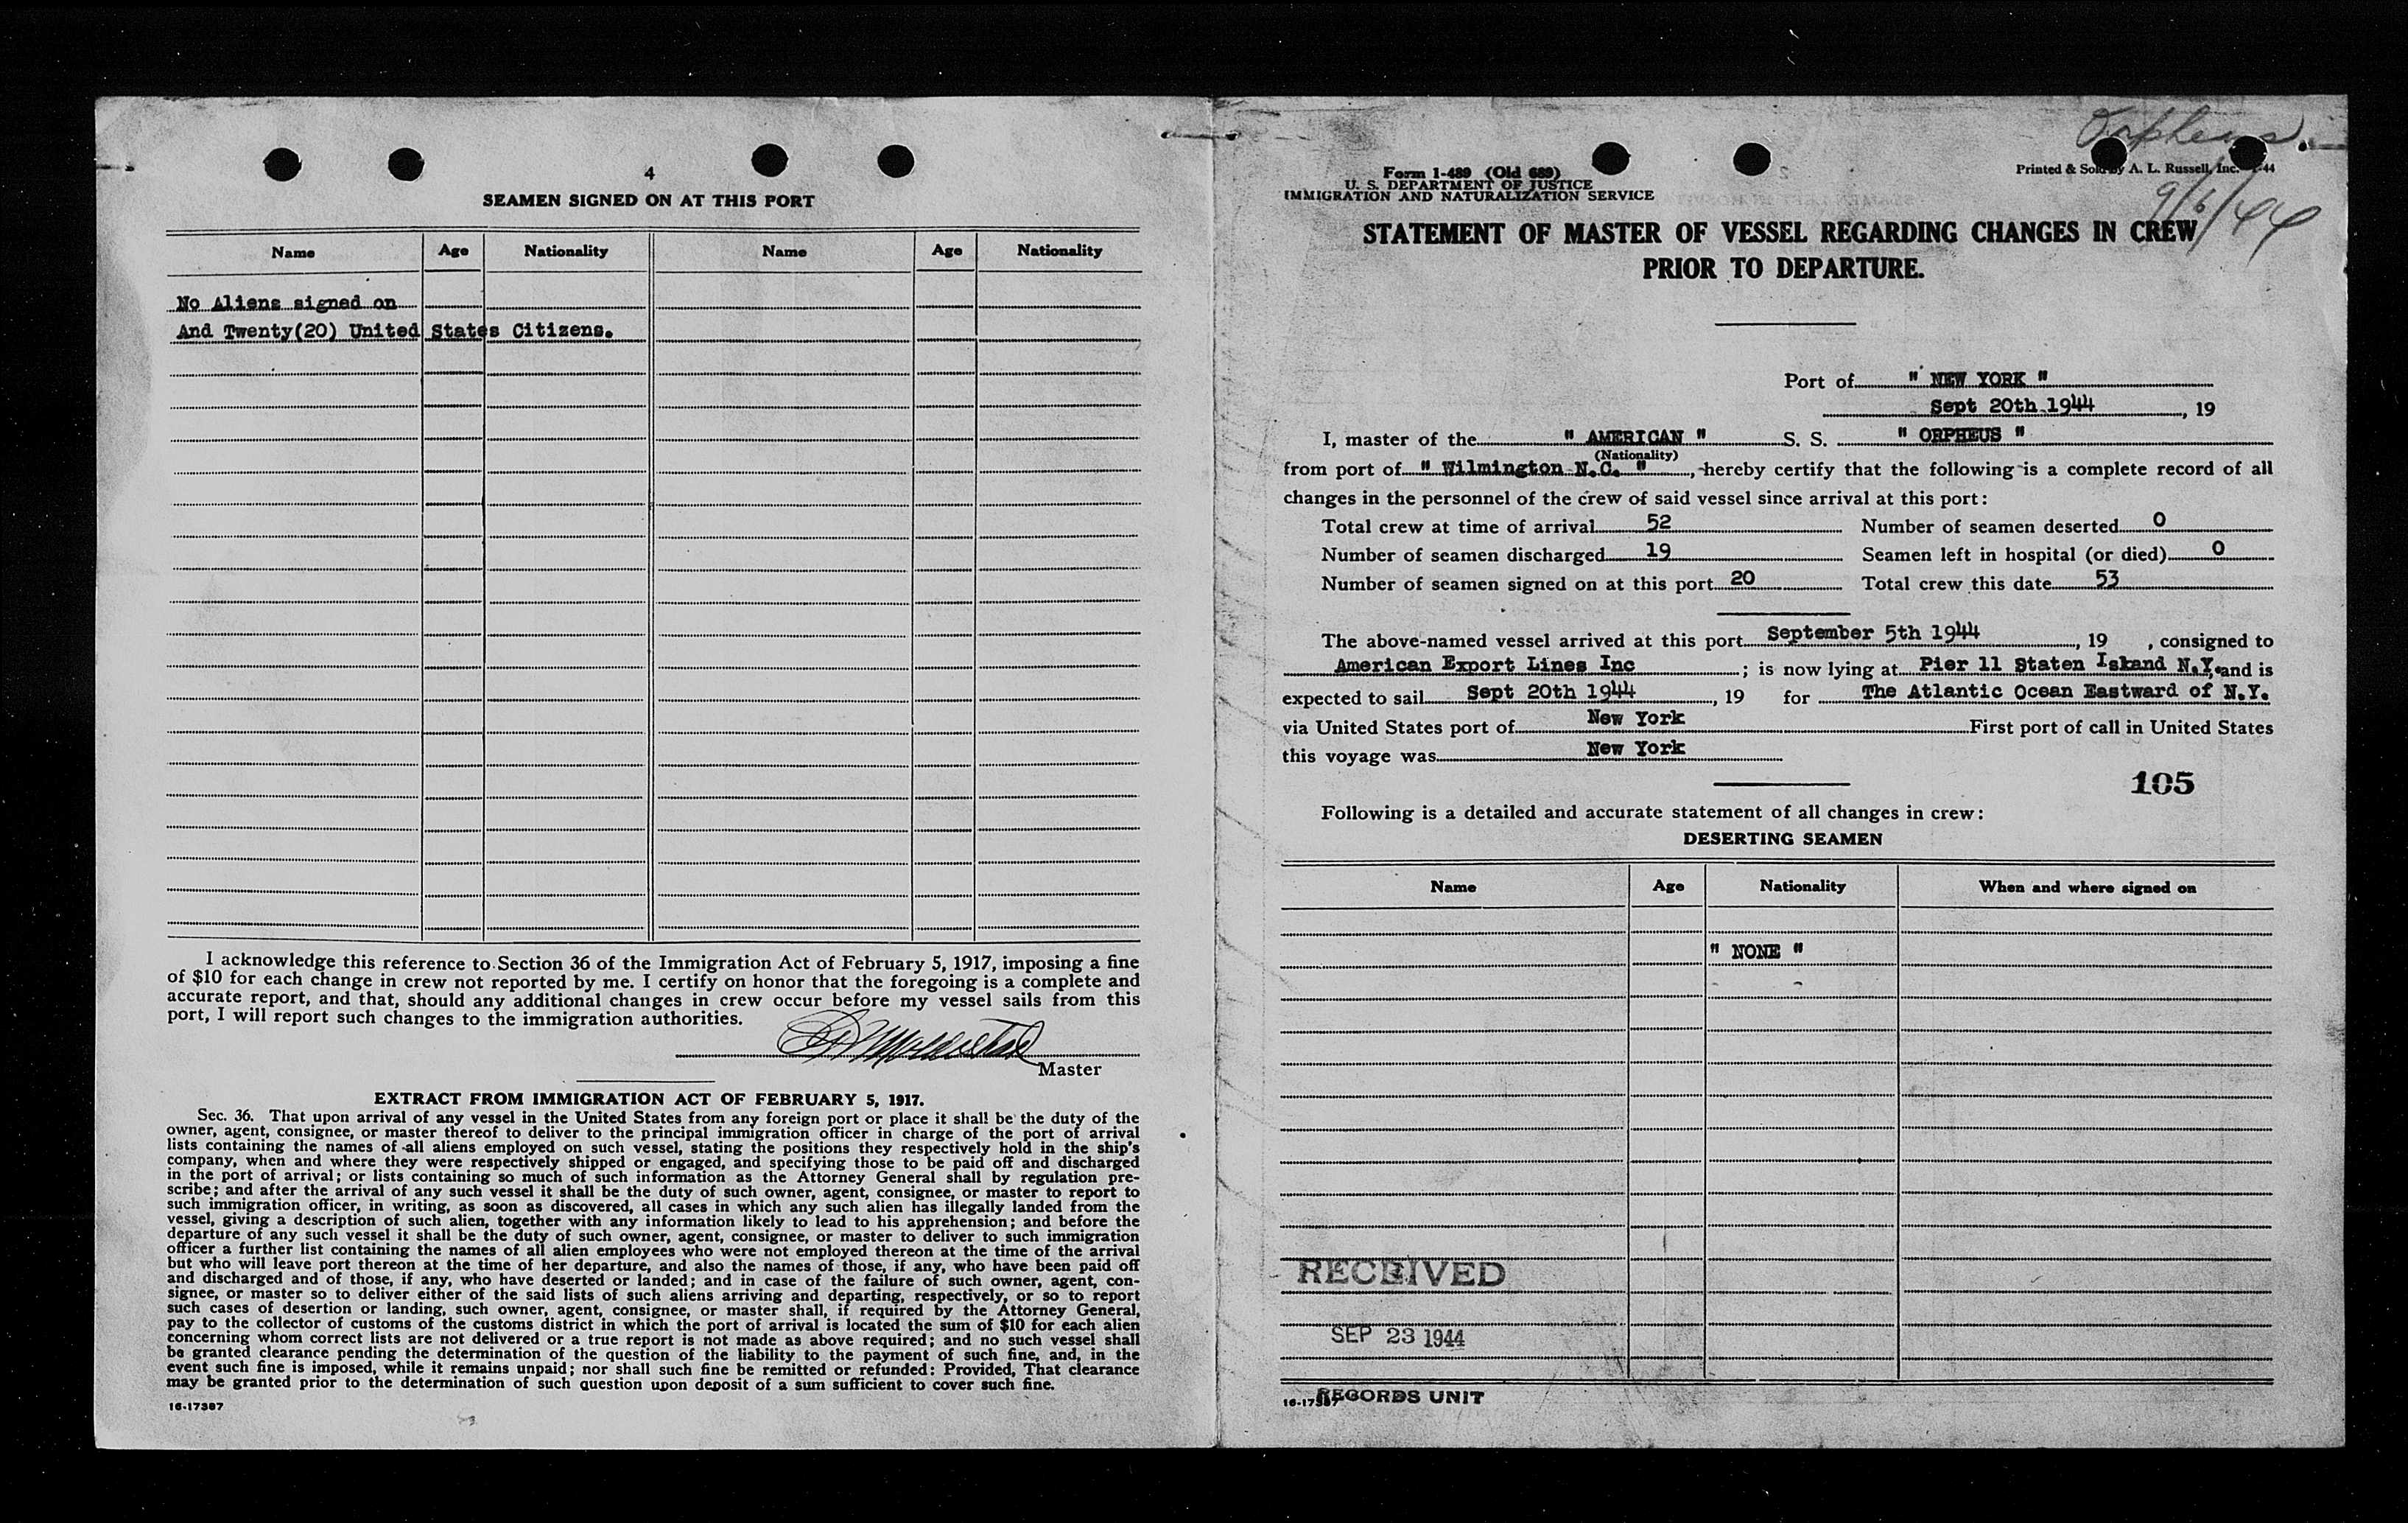 4
SEAMEN SIGNED ON AT THIS PORT
Name Age Nationality Name Age Nationality
No Aliens signed on
And Twenty(20) United States Citizens.
I acknowledge this reference to Section 36 of the Immigration Act of February 5, 1917, imposing a fine
of $10 for each change in crew not reported by me. I certify on honor that the foregoing is a complete and
accurate report, and that, should any additional changes in crew occur before my vessel sails from this
port, I will report such changes to the immigration authorities.
Master
EXTRACT FROM IMMIGRATION ACT OF FEBRUARY 5, 1917.
Sec. 36. That upon arrival of any vessel in the United States from any foreign port or place it shall be the duty of the
owner, agent, consignee, or master thereof to deliver to the principal immigration officer in charge of the port of arrival
lists containing the names of all aliens employed on such vessel, stating the positions they respectively hold in the ship's
company, when and where they were respectively shipped or engaged, and specifying those to be paid off and discharged
in the port of arrival; or lists containing so much of such information as the Attorney General shall by regulation pre-
scribe; and after the arrival of any such vessel it shall be the duty of such owner, agent, consignee, or master to report to
such immigration officer, in writing, as soon as discovered, all cases in which any such alien has illegally landed from the
vessel, giving a description of such alien, together with any information likely to lead to his apprehension; and before the
departure of any such vessel it shall be the duty of such owner, agent, consignee, or master to deliver to such immigration
officer a further list containing the names of all alien employees who were not employed thereon at the time of the arrival
but who will leave port thereon at the time of her departure, and also the names of those, if any, who have been paid off
and discharged and of those, if any, who have deserted or landed; and in case of the failure of such owner, agent, con-
signee, or master so to deliver either of the said lists of such aliens arriving and departing, respectively, or so to report
such cases of desertion or landing, such owner, agent, consignee, or master shall, if required by the Attorney General,
pay to the collector of customs of the customs district in which the port of arrival is located the sum of $10 for each alien
concerning whom correct lists are not delivered or a true report is not made as above required; and no such vessel shall
be granted clearance pending the determination of the question of the liability to the payment of such fine, and, in the
event such fine is imposed, while it remains unpaid; nor shall such fine be remitted or refunded: Provided, That clearance
may be granted prior to the determination of such question upon deposit of a sum sufficient to cover such fine.
16-17387
Orpheus.
9/6/44
Form 1-489 (Old 689)
U. S. DEPARTMENT OF JUSTICE
IMMIGRATION AND NATURALIZATION SERVICE
Printed & Sold by A. L. Russell, Inc. -44
STATEMENT OF MASTER OF VESSEL REGARDING CHANGES IN CREW
PRIOR TO DEPARTURE.
Port of " NEW YORK "
Sept 20th 1944, 19
I, master of the " AMERICAN " S. S. " ORPHEUS "
(Nationality)
from port of " Wilmington N.C. ", hereby certify that the following is a complete record of all
changes in the personnel of the crew of said vessel since arrival at this port:
Total crew at time of arrival 52 Number of seamen deserted 0
Number of seamen discharged 19 Seamen left in hospital (or died) 0
Number of seamen signed on at this port 20 Total crew this date 53
The above-named vessel arrived at this port September 5th 1944, 19 , consigned to
American Export Lines Inc ; is now lying at Pier 11 Staten Island N.Y. and is
expected to sail Sept 20th 1944, 19 for The Atlantic Ocean Eastward of N.Y.
via United States port of New York First port of call in United States
this voyage was New York
105
Following is a detailed and accurate statement of all changes in crew:
DESERTING SEAMEN
Name Age Nationality When and where signed on
" NONE "
RECEIVED
SEP 23 1944
RECORDS UNIT
16-17387